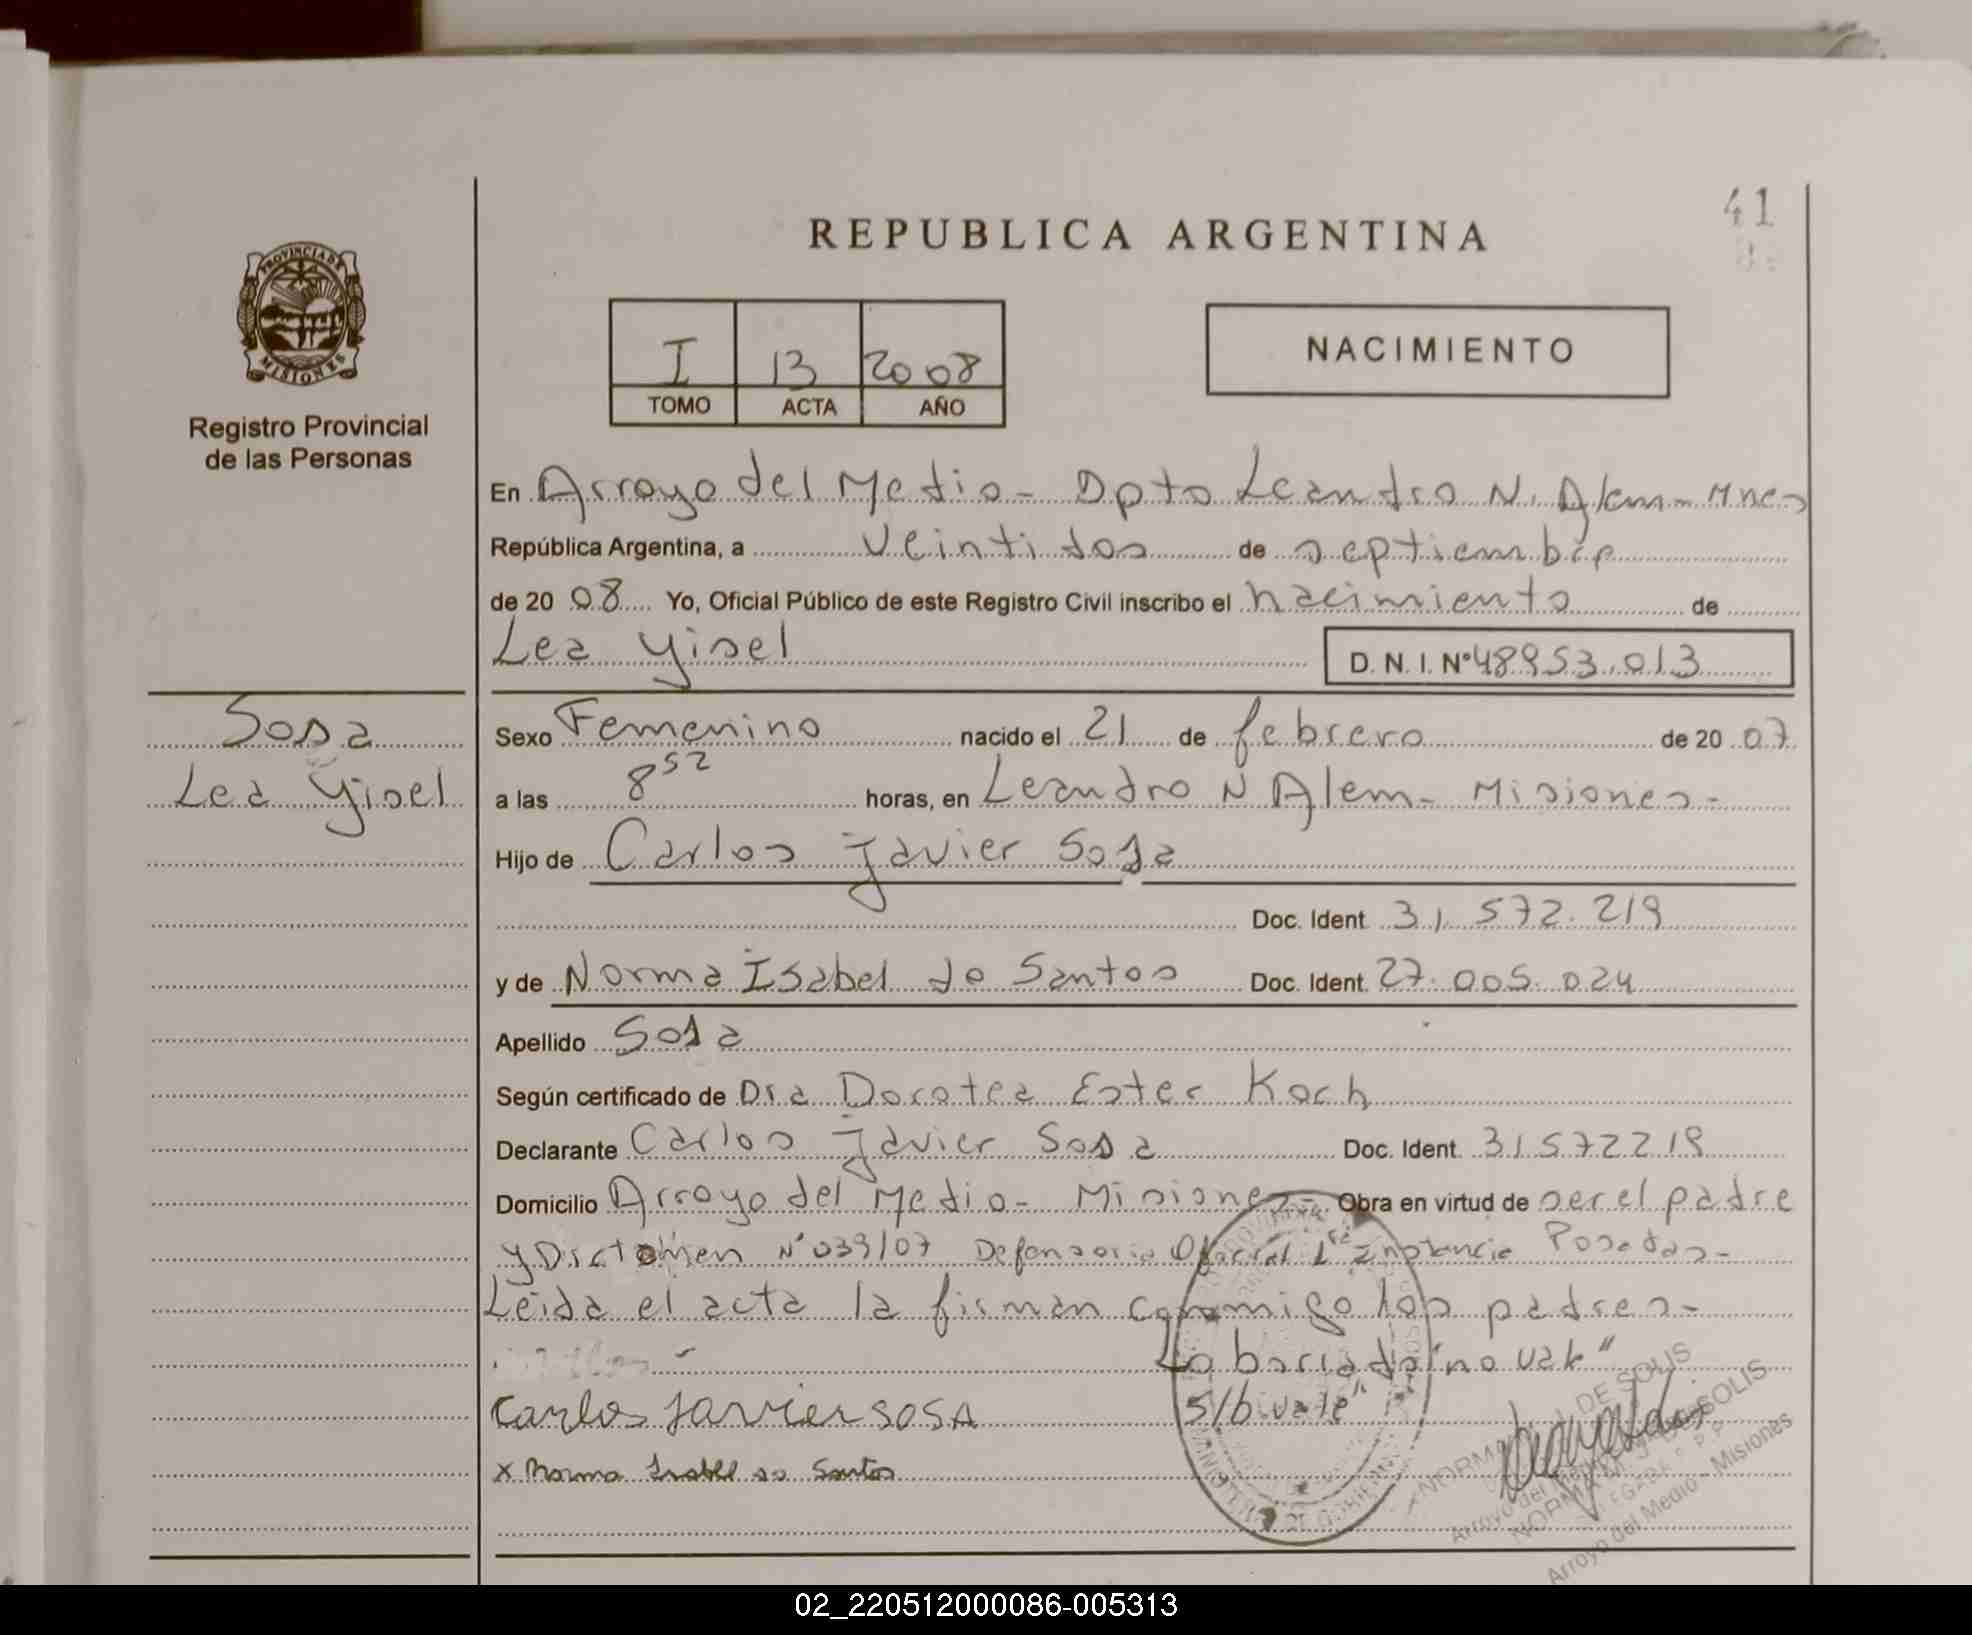 REPUBLICA ARGENTINA
41
PROVINCIA DE
MISIONES
Registro Provincial
de las Personas
I 13 2008
TOMO ACTA AÑO
NACIMIENTO
En Arroyo del Medio - Dpto Leandro N. Alem - Mnes
República Argentina, a veintidos de septiembre
de 20 08 Yo, Oficial Público de este Registro Civil inscribo el nacimiento de
Lea Yisel D. N. I. Nº 48953.013
Sosa
Lea Yisel
Sexo Femenino nacido el 21 de febrero de 20 07
a las 8 52 horas, en Leandro N Alem - Misiones -
Hijo de Carlos Javier Sosa
Doc. Ident. 31.572.219
y de Norma Isabel do Santos Doc. Ident. 27.005.024
Apellido Sosa
Según certificado de Dra Dorotea Ester Koch
Declarante Carlos Javier Sosa Doc. Ident. 31572219
Domicilio Arroyo del Medio - Misiones - Obra en virtud de ser el padre
y Dictamen Nº 039/07 Defensoria Oficial 1ra Instancia Posadas -
Leida el acta la firman conmigo los padres -
Lo borrado "no vale"
S/b "vale"
Carlos Javier SOSA
x Norma Isabel do Santos
NORMA DE SOLIS
Arroyo del Medio - Misiones
02_220512000086-005313